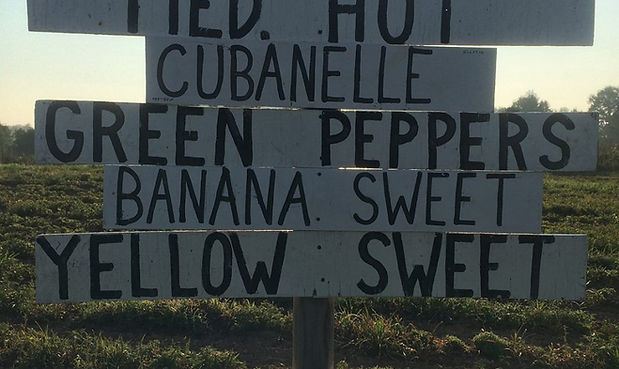 MED. HOT
CUBANELLE
GREEN PEPPERS
BANANA SWEET
YELLOW SWEET